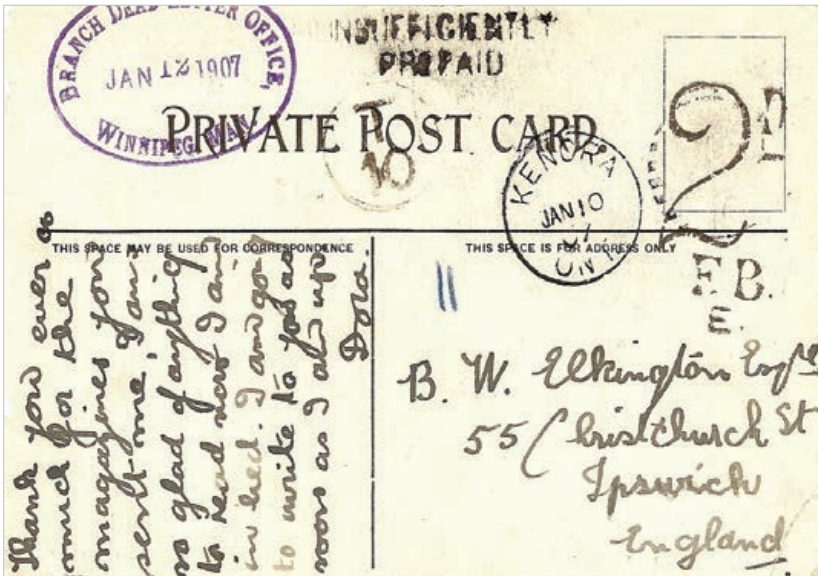 BRANCH DEAD LETTER OFFICE,
JAN 12 1907
WINNIPEG, MAN
INSUFFICIENTLY
PREPAID
PRIVATE POST CARD
T
10
2
KENORA
JAN 10
ONT
THIS SPACE MAY BE USED FOR CORRESPONDENCE
THIS SPACE IS FOR ADDRESS ONLY
F.B.
E.
Thank you ever so
much for the
magazines you
sent me, I am
so glad of anything
to read now I am
in bed. I am going
to write to you as
soon as I am up
Dora.
11
B. W. Elkington Esqre
55 Christchurch St
Ipswich
England